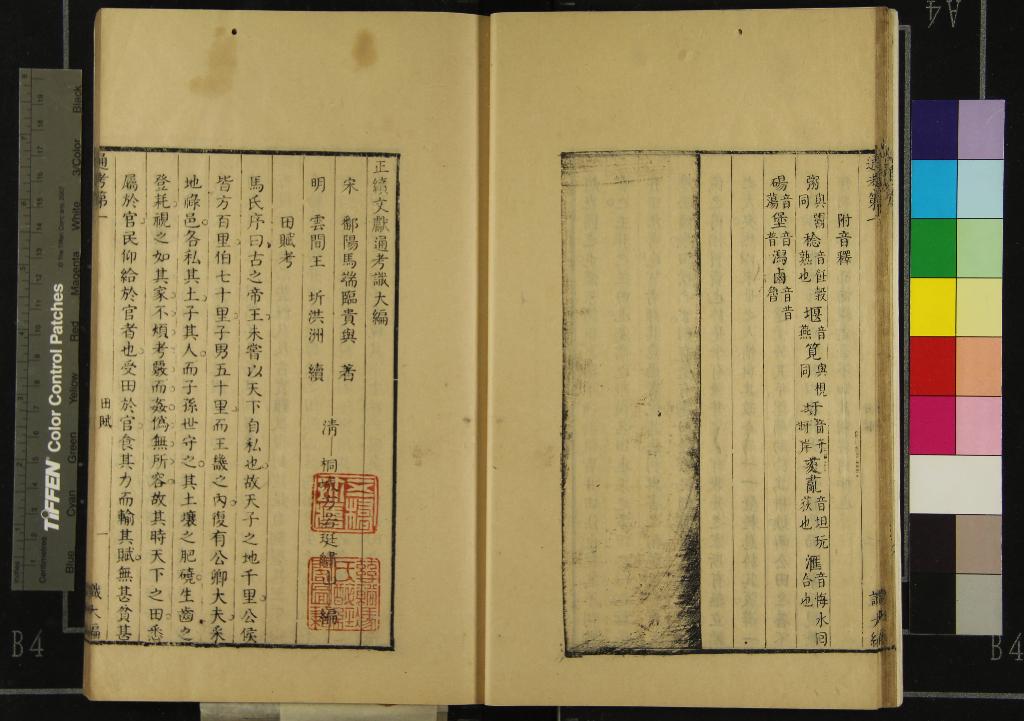 附音釋
粥與鬻同 稔音飪穀熟也 堰音燕 筧與梘同 圩音于圩岸 菼薍音坦玩荻也 滙音悔水回合也
碭音蕩 堡音普 潟鹵音昔魯
通考第一
識大編
正續文獻通考識大編
宋 鄱陽馬端臨貴與 著
明 雲間王 圻洪洲 續
清 桐城方若珽 編
田賦考
馬氏序曰古之帝王未嘗以天下自私也故天子之地千里公侯
皆方百里伯七十里子男五十里而王畿之內復有公卿大夫采
地祿邑各私其土子其人而子孫世守之其土壤之肥磽生齒之
登耗視之如其家不煩考覈而姦偽無所容故其時天下之田悉
屬於官民仰給於官者也受田於官食其力而輸其賦無甚貧甚
通考第一
田賦
一
識大編
TIFFEN Color Control Patches
Blue
Cyan
Green
Yellow
Red
Magenta
White
3/Color
Black
Centimetres
B4
B4
A4